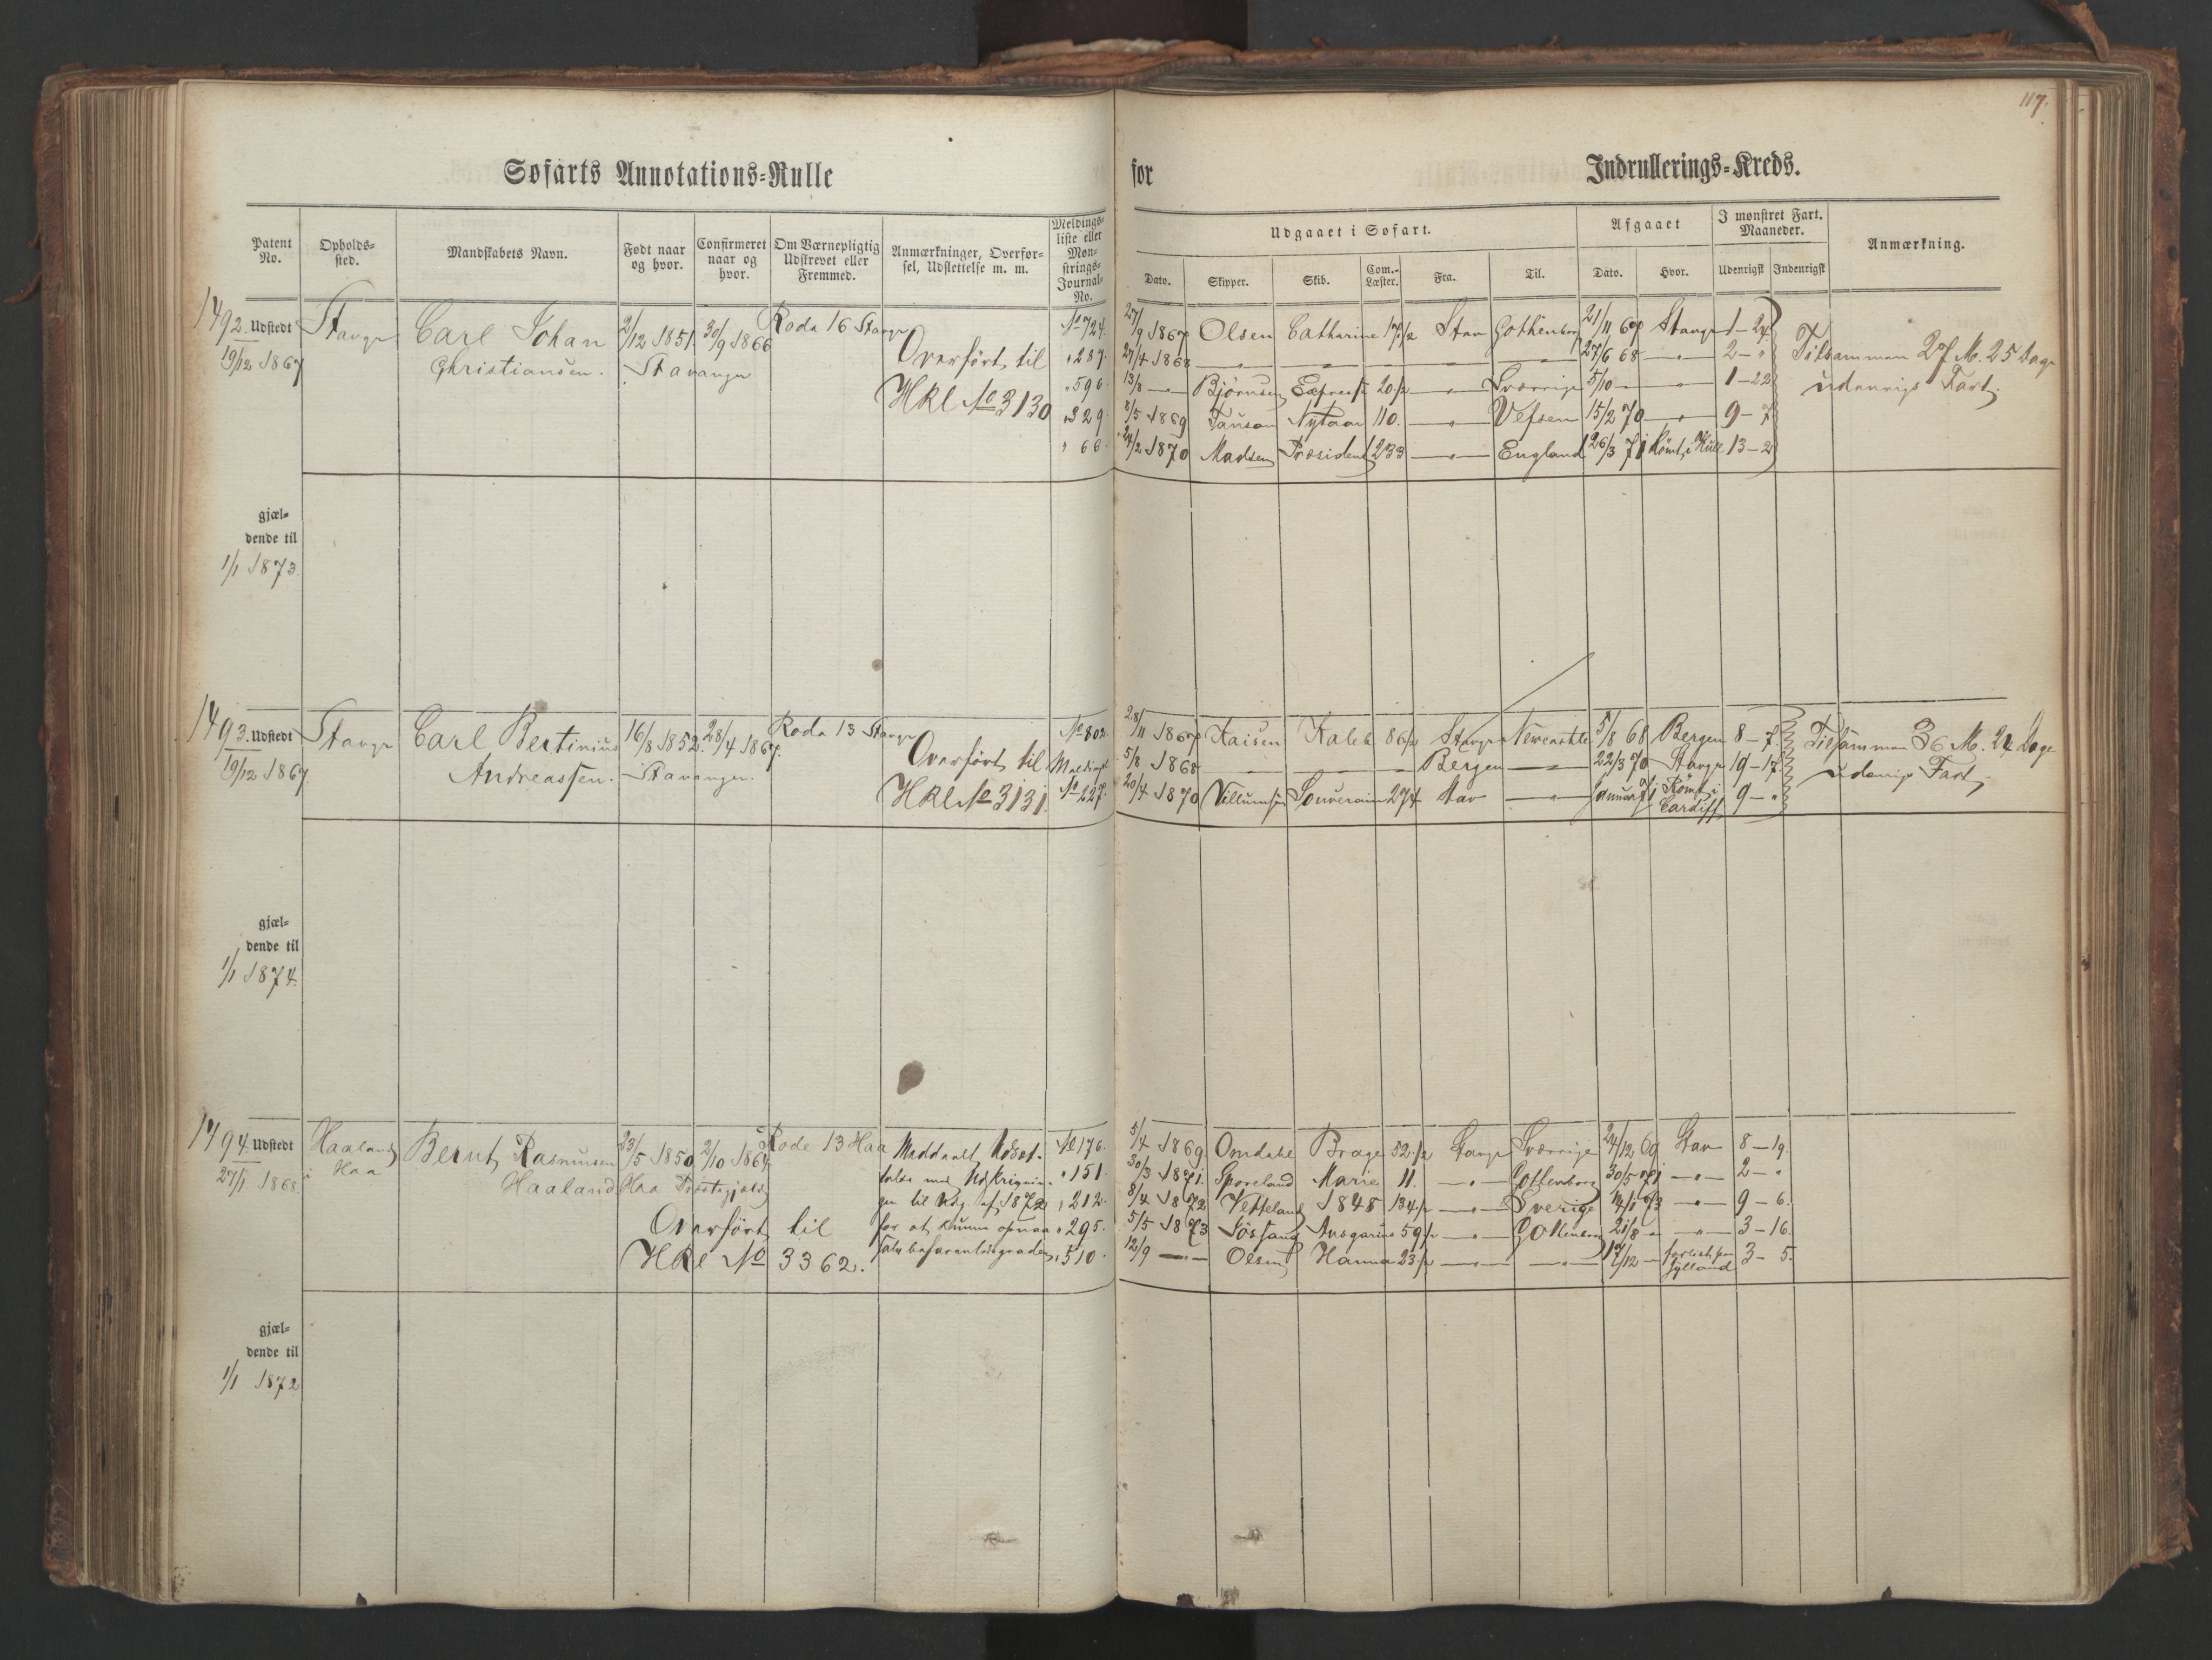 117.
Søfarts Annotations-Rulle for Indrullerings-Kreds.
Patent No. Opholds-sted. Mandskabets Navn. Født naar og hvor. Confirmeret naar og hvor. Om Værnepligtig Udskrevet eller Fremmed. Anmærkninger, Overførsel, Udslettelse m. m. Meldings-liste eller Mønstrings-Journal-No.
Udgaaet i Søfart. Afgaaet I mønstret Fart. Maaneder. Anmærkning.
Dato. Skipper. Skib. Com.-Læster. Fra. Til. Dato. Hvor. Udenrigst Indenrigst
1492. Udstedt 19/12 1867
Stavgr
Carl Johan
Christiansen.
2/12 1851 Stavanger
30/9 1866
Rode 16 Stavgr
Overført til
HRl No 3130
No 724. 27/9 1867 Olsen Catharine 17 1/2 Stav Gothenborg 21/11 67 Stavgr 1-24
" 287. 27/4 1868 — — — — 27/6 68 —"— 2-"
" 596. 13/8 —"— Bjørnsen Express 20 1/2 —"— Sverrige 5/10 — —"— 1-22
" 329. 8/5 1869 Tanson 110. —"— Vefsen 15/2 70 —"— 9-7
" 66. 24/2 1870 Madsen President 233 —"— England 26/3 71 Rømt i Hull 13-2
Tilsammen 27 M. 25 Dage
udenrigs Fart.
gjæl-
dende til
1/1 1873.
1493. Udstedt 19/12 1867
Stavgr
Carl Bertinius
Andreassen.
16/8 1852. Stavanger.
28/4 1867.
Rode 13 Stavgr
Overført til
HRl No 3131.
No 802. 28/11 1867 Kaisen Kaleb 86 1/2 Stavgr Newcastle 5/8 68 Bergen 8-7.
5/8 1868 — — — Bergen — 22/3 70 Stavgr 19-17.
No 227. 20/4 1870 Villumsen Souverain 274 Stav —"— Januar 71 Rømt i Cardiff 9-"
Tilsammen 36 M. 24 Dage
udenrigs Fart.
gjæl-
dende til
1/1 1874.
1494. Udstedt 27/1 1868
Haaland i Haa
Bernt Rasmussen
Haaland
23/5 1850 Haa
2/10 1864
Rode 13 Haa
Overført til
HRl No 3362.
Meddealt Udset-
telse med Udskrivnin-
gen til Udg. af 1872
for at kunne opnaa
befarenhedsgraden.
No 176. 5/4 1869 Omdahl Brage 52 1/2 Stavgr Sverrige 24/12 69 Stav 8-19.
" 151. 30/3 1871. Sporeland Marie 11. —"— Gottenborg 30/5 71 —"— 2-"
" 212. 8/4 1872 Vetteland 1848 134 1/2 —"— Sverige 14/1 73 —"— 9-6.
" 295. 5/5 1873 Jössang Ansgarius 59 1/2 —"— Gottenborg 21/8 " —"— 3-16.
" 510. 12/9 —"— Olsen Hanna 23 1/2 —"— —"— 17/12 — forlist paa Jylland 3-5.
gjæl-
dende til
1/1 1872